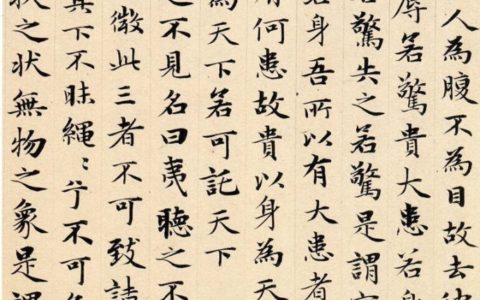 人為腹不為目故去彼
辱若驚貴大患若身
若驚失之若驚是謂
若身吾所以有大患者
有何患故貴以身為天
為天下若可託天下
之不見名曰夷聽之不
微此三者不可致詰
其下不昧繩〻兮不可名
狀之狀無物之象是謂